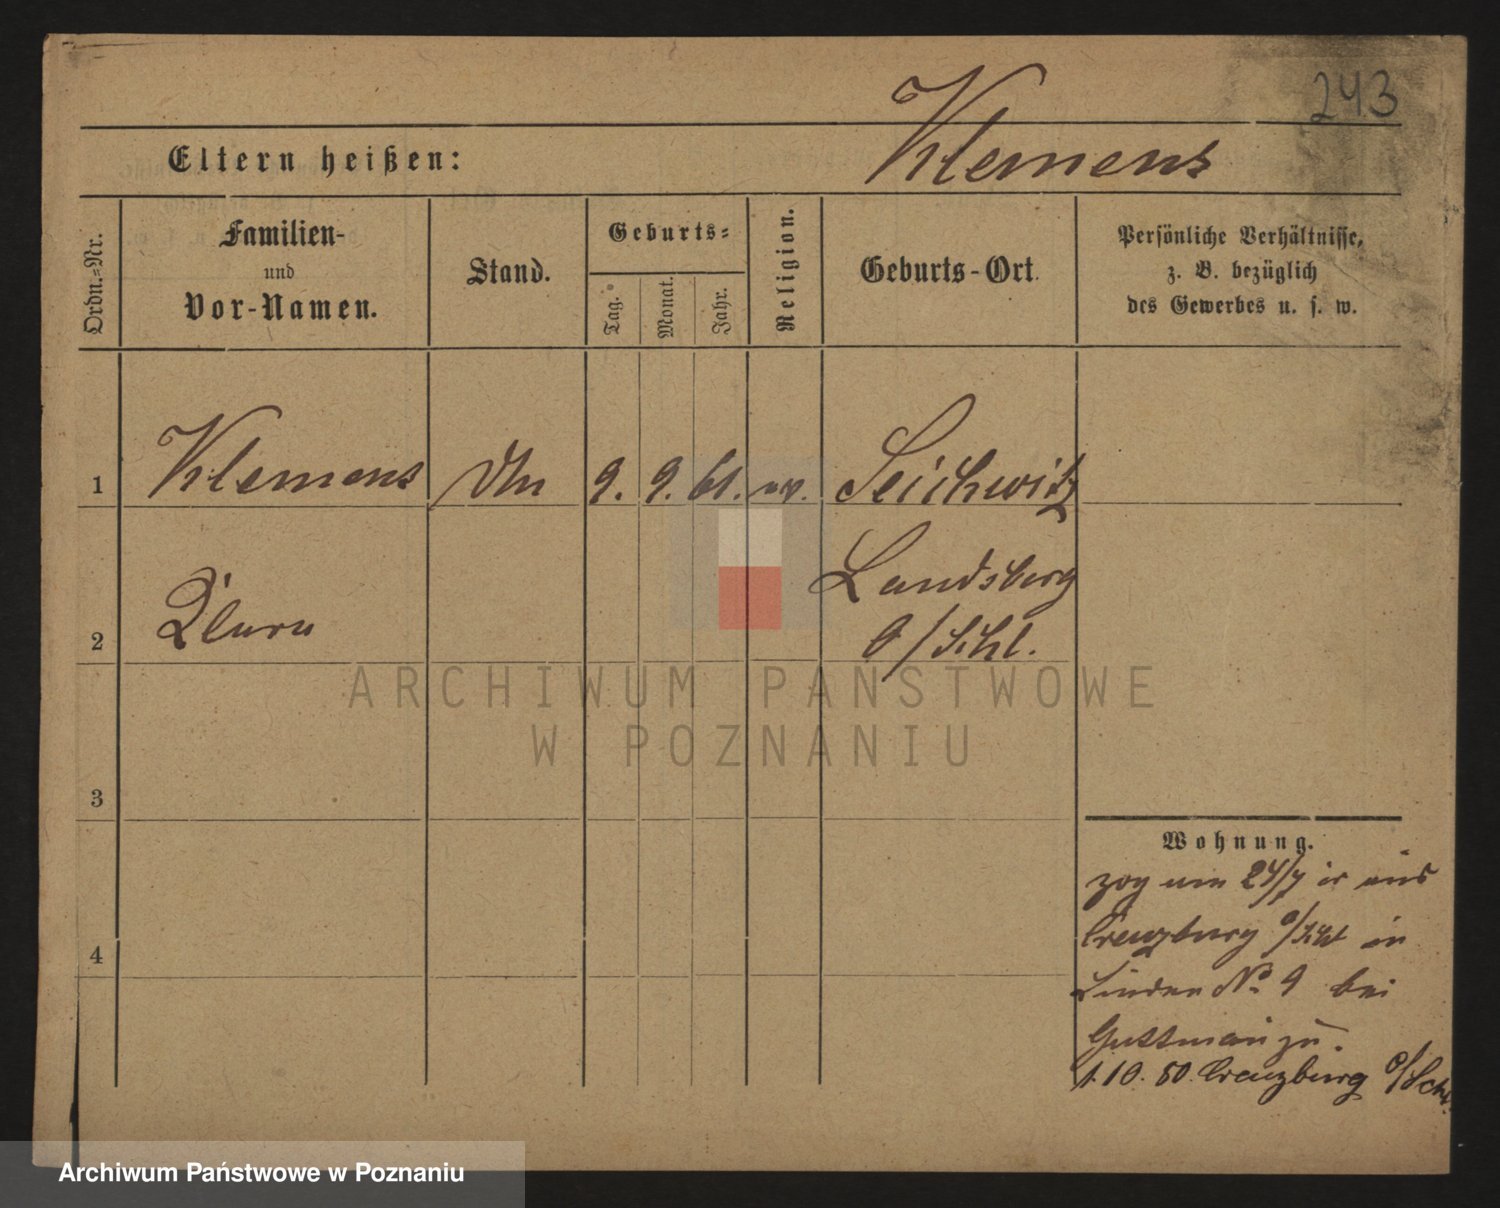 243
Klemens
Eltern heißen:
Ordn.-Nr.
Familien-
und
Vor-Namen.
Stand.
Geburts-
Tag.
Monat.
Jahr.
Religion.
Geburts-Ort.
Persönliche Verhältnisse,
z. B. bezüglich
des Gewerbes u. s. w.
1 Klemens 9. 9. 61. Seichwitz
2 Clara Landsberg
O/Schl.
3
4
ARCHIWUM PAŃSTWOWE
W POZNANIU
Wohnung.
zog am 24/7 cr aus
Creuzburg O/Schl in
Linden No 9 bei
Guttmann zu.
1.10.80. Creuzburg O/Schl.
Archiwum Państwowe w Poznaniu